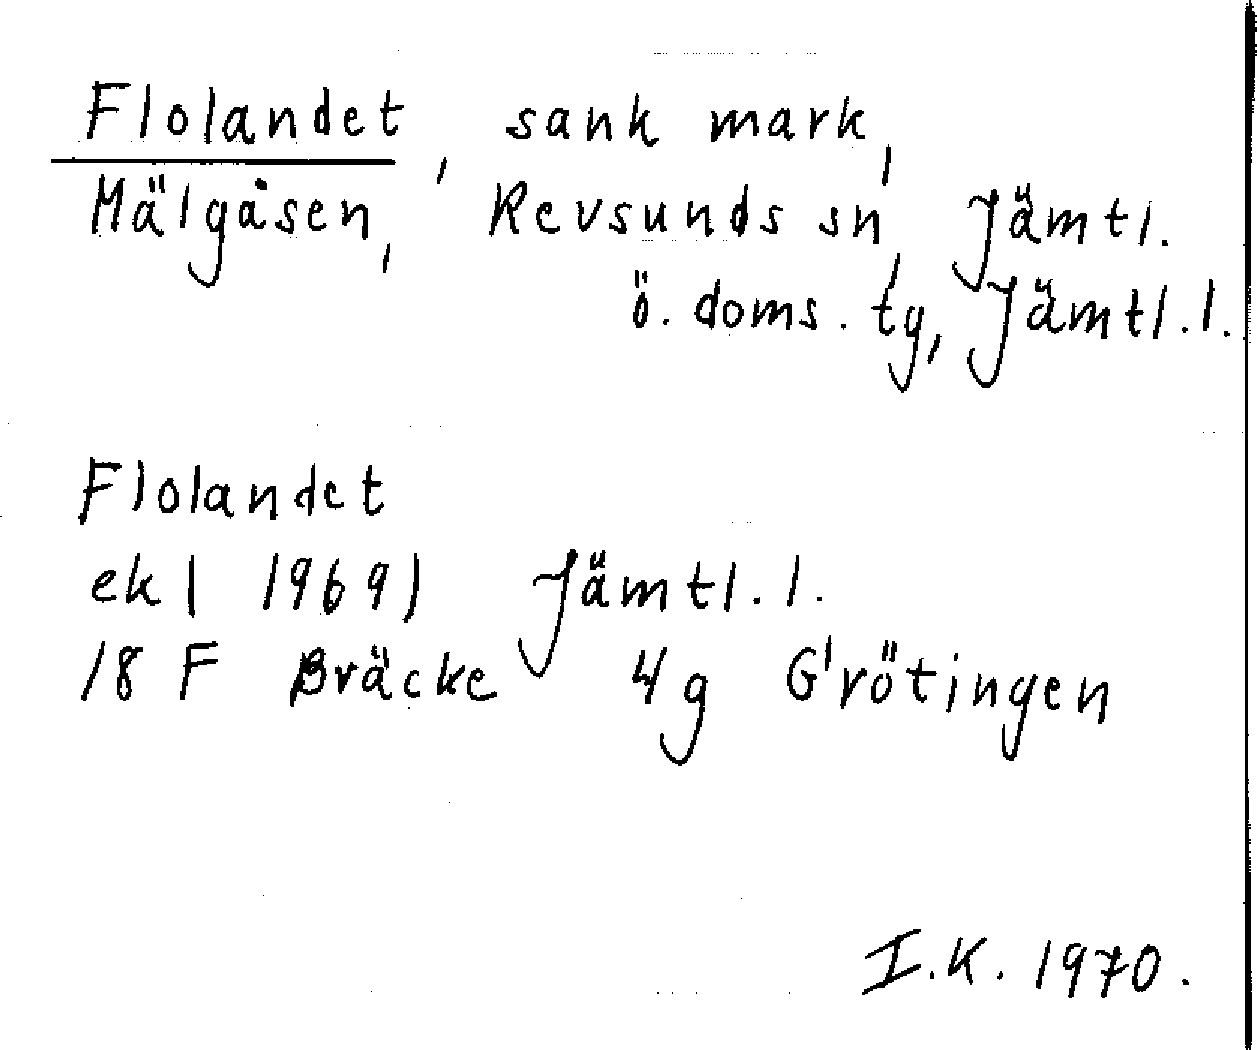 Flolandet, sank mark,
Mälgåsen, Revsunds sn, Jämtl.
ö. doms. tg, Jämtl. l.
Flolandet
ek ( 1969) Jämtl. l.
18 F Bräcke 4g Grötingen
I.K. 1970.